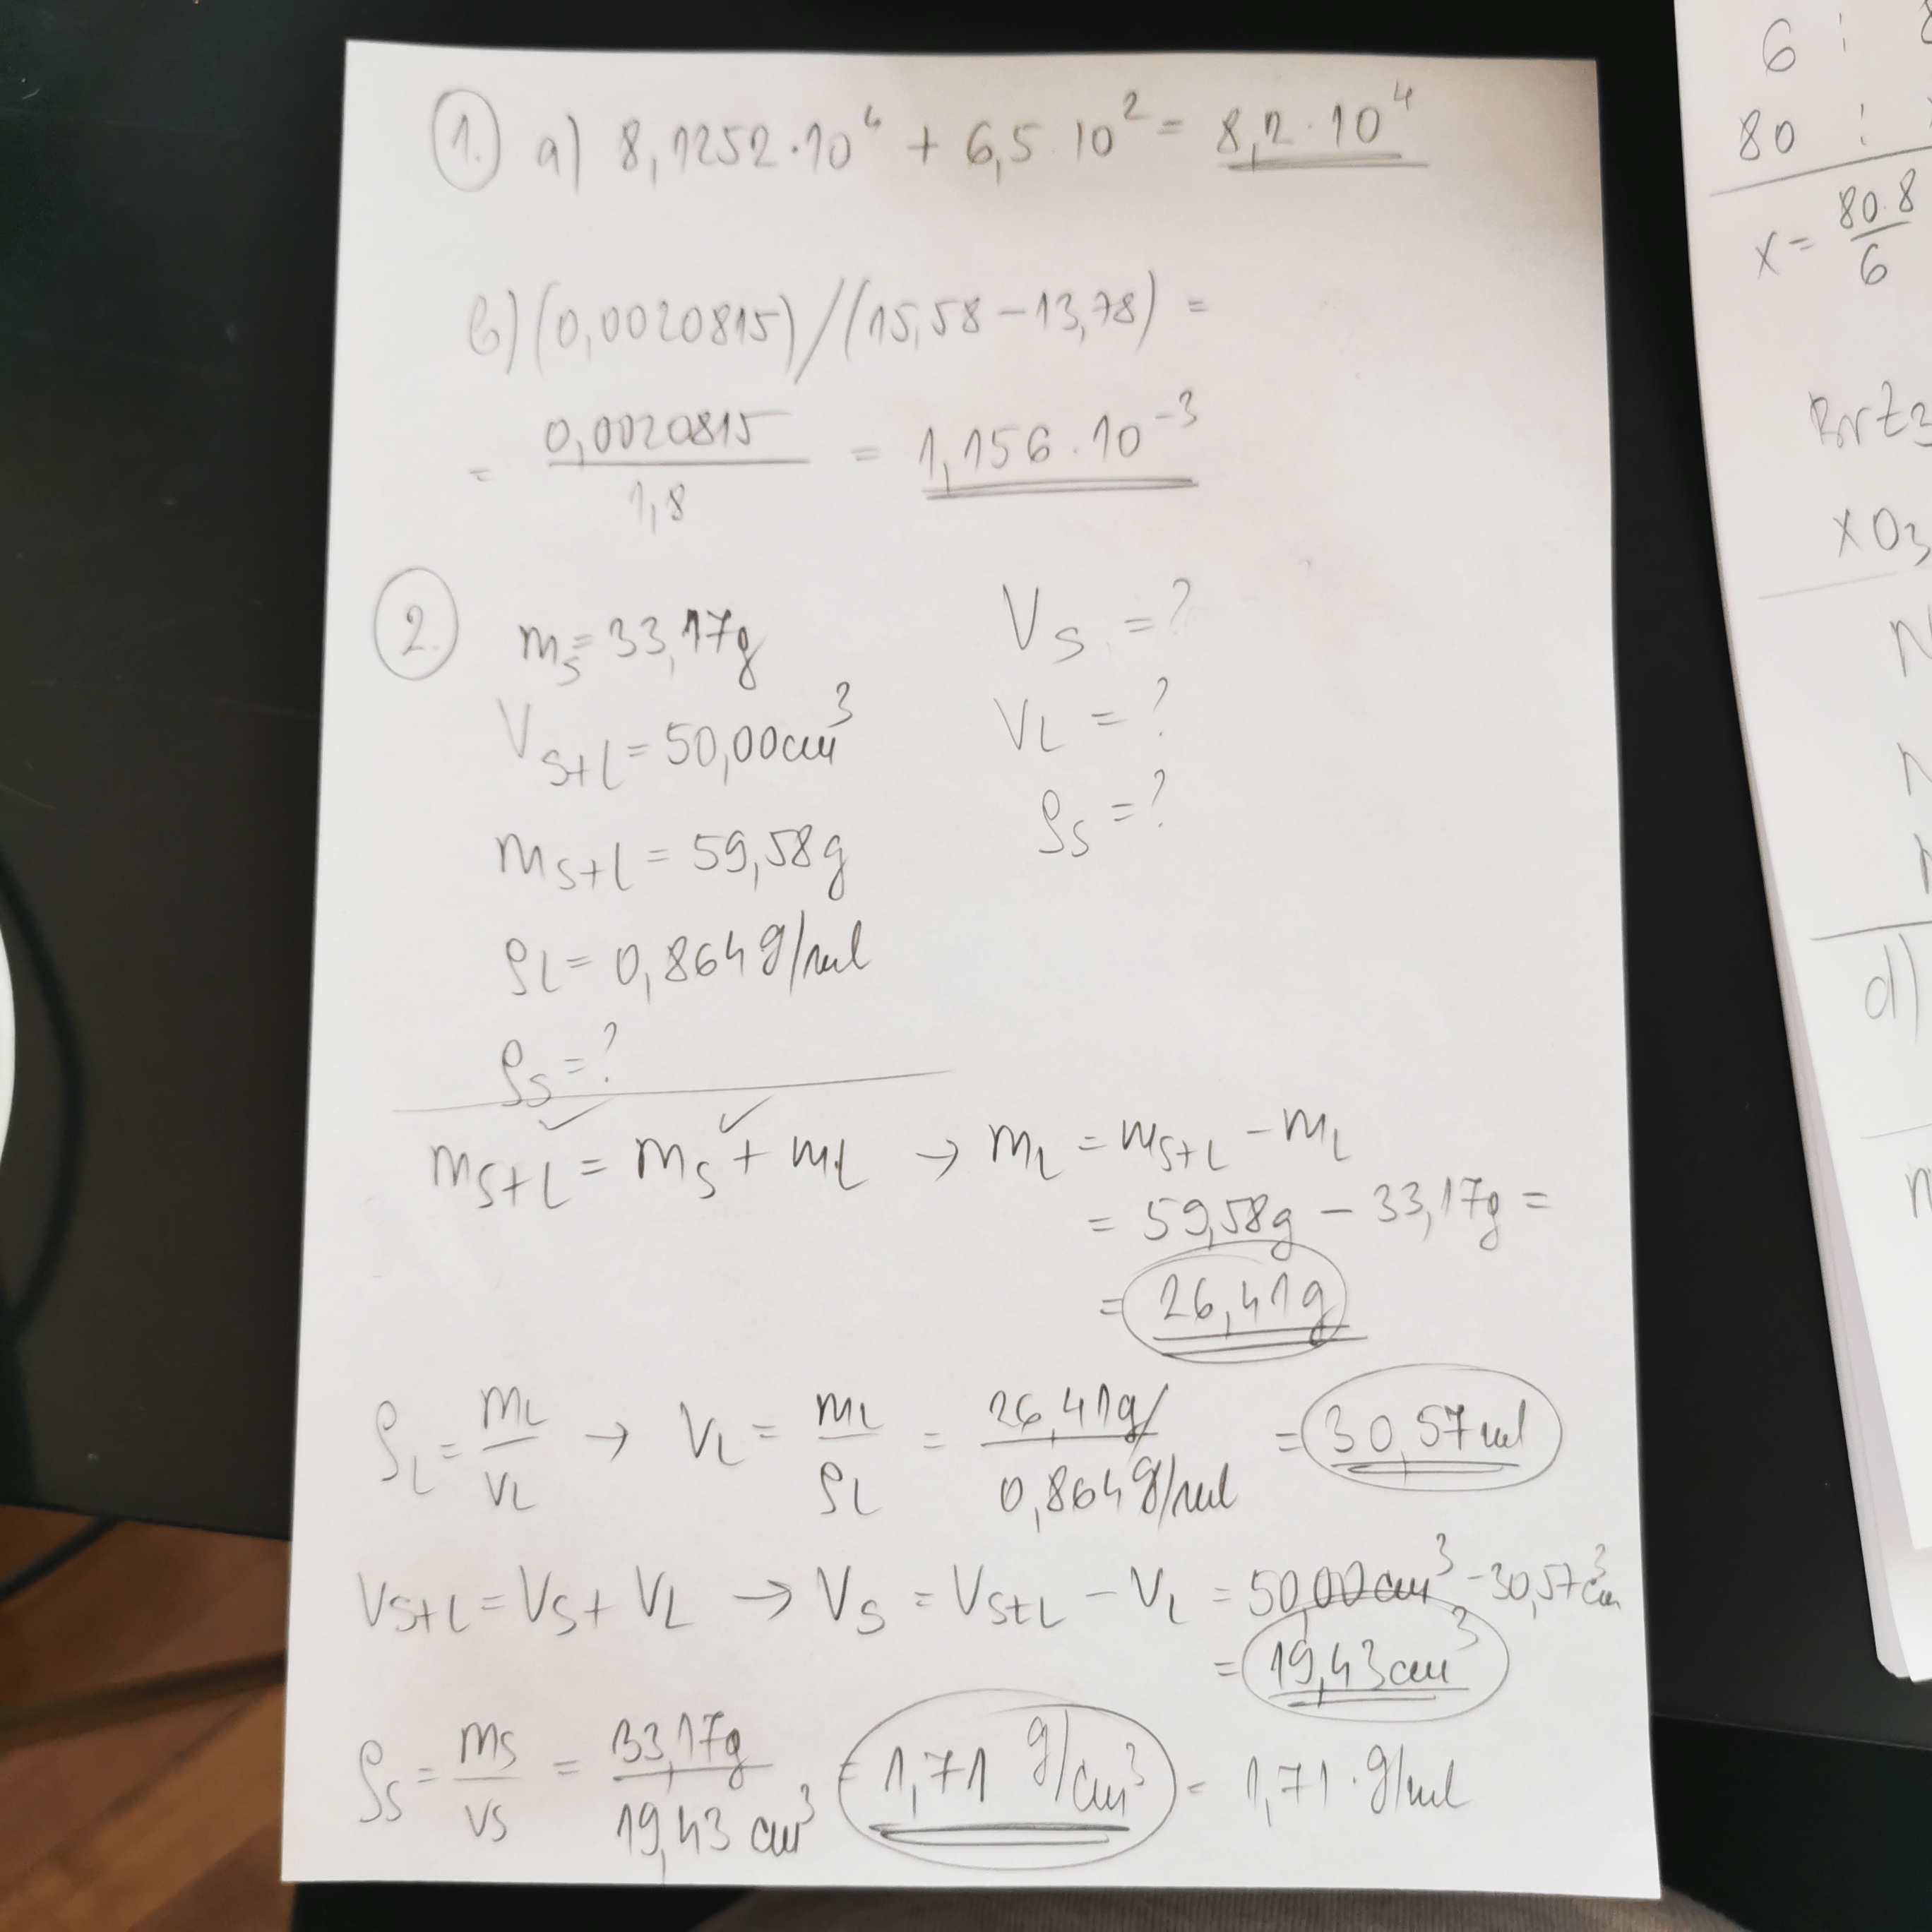 1. a) 8,1252·10⁴ + 6,5·10² = 8,2·10⁴
b) (0,0020815)/(15,58-13,78) =
= 0,0020815 / 1,8 = 1,156·10⁻³
2. mₛ = 33,17g Vₛ = ?
V_S+L = 50,00cm³ V_L = ?
m_S+L = 59,58g ρ_S = ?
ρ_L = 0,864 g/ml
ρ_S = ?
m_S+L = m_S + m_L → m_L = m_S+L - m_L
= 59,58g - 33,17g =
= 26,41g
ρ_L = m_L / V_L → V_L = m_L / ρ_L = 26,41g / 0,864 g/ml = 30,57 ml
V_S+L = V_S + V_L → V_S = V_S+L - V_L = 50,00cm³ - 30,57cm³
= 19,43cm³
ρ_S = m_S / V_S = 33,17g / 19,43 cm³ = 1,71 g/cm³ = 1,71·g/ml
6 :
80 :
x = 80·8 / 6
XO₃
d)